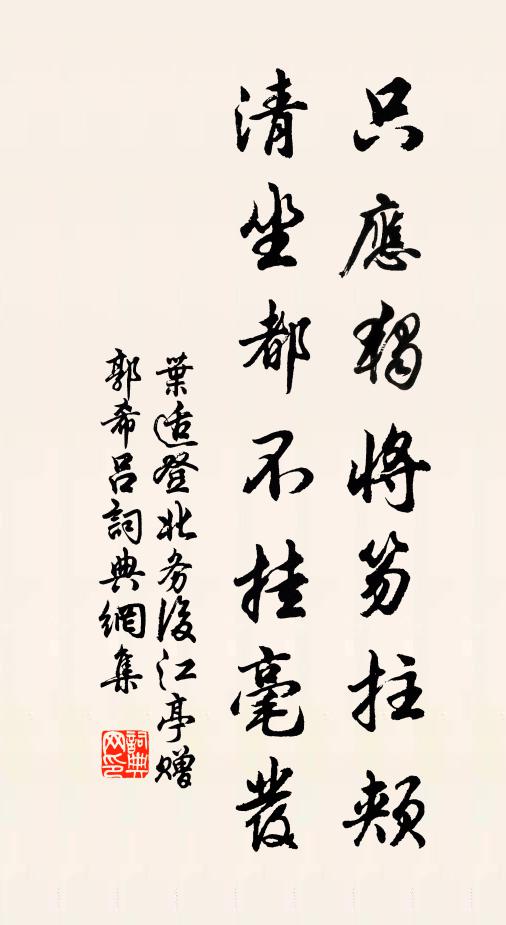 只應獨將笏拄頰
清坐都不挂毫發
葉适登北务後江亭赠
郭希呂詞典網集
詞典网印